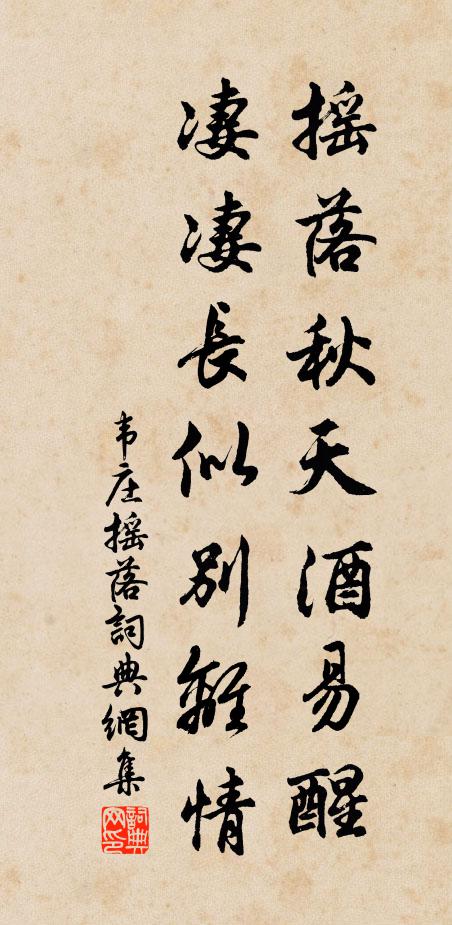 搖落秋天酒易醒
凄凄長似別離情
韦庄搖落詞典網集
詞典网印